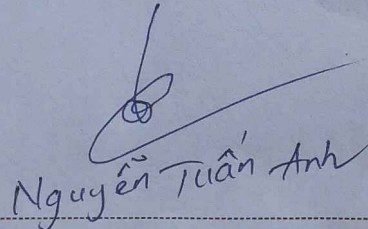 Nguyễn Tuấn Anh